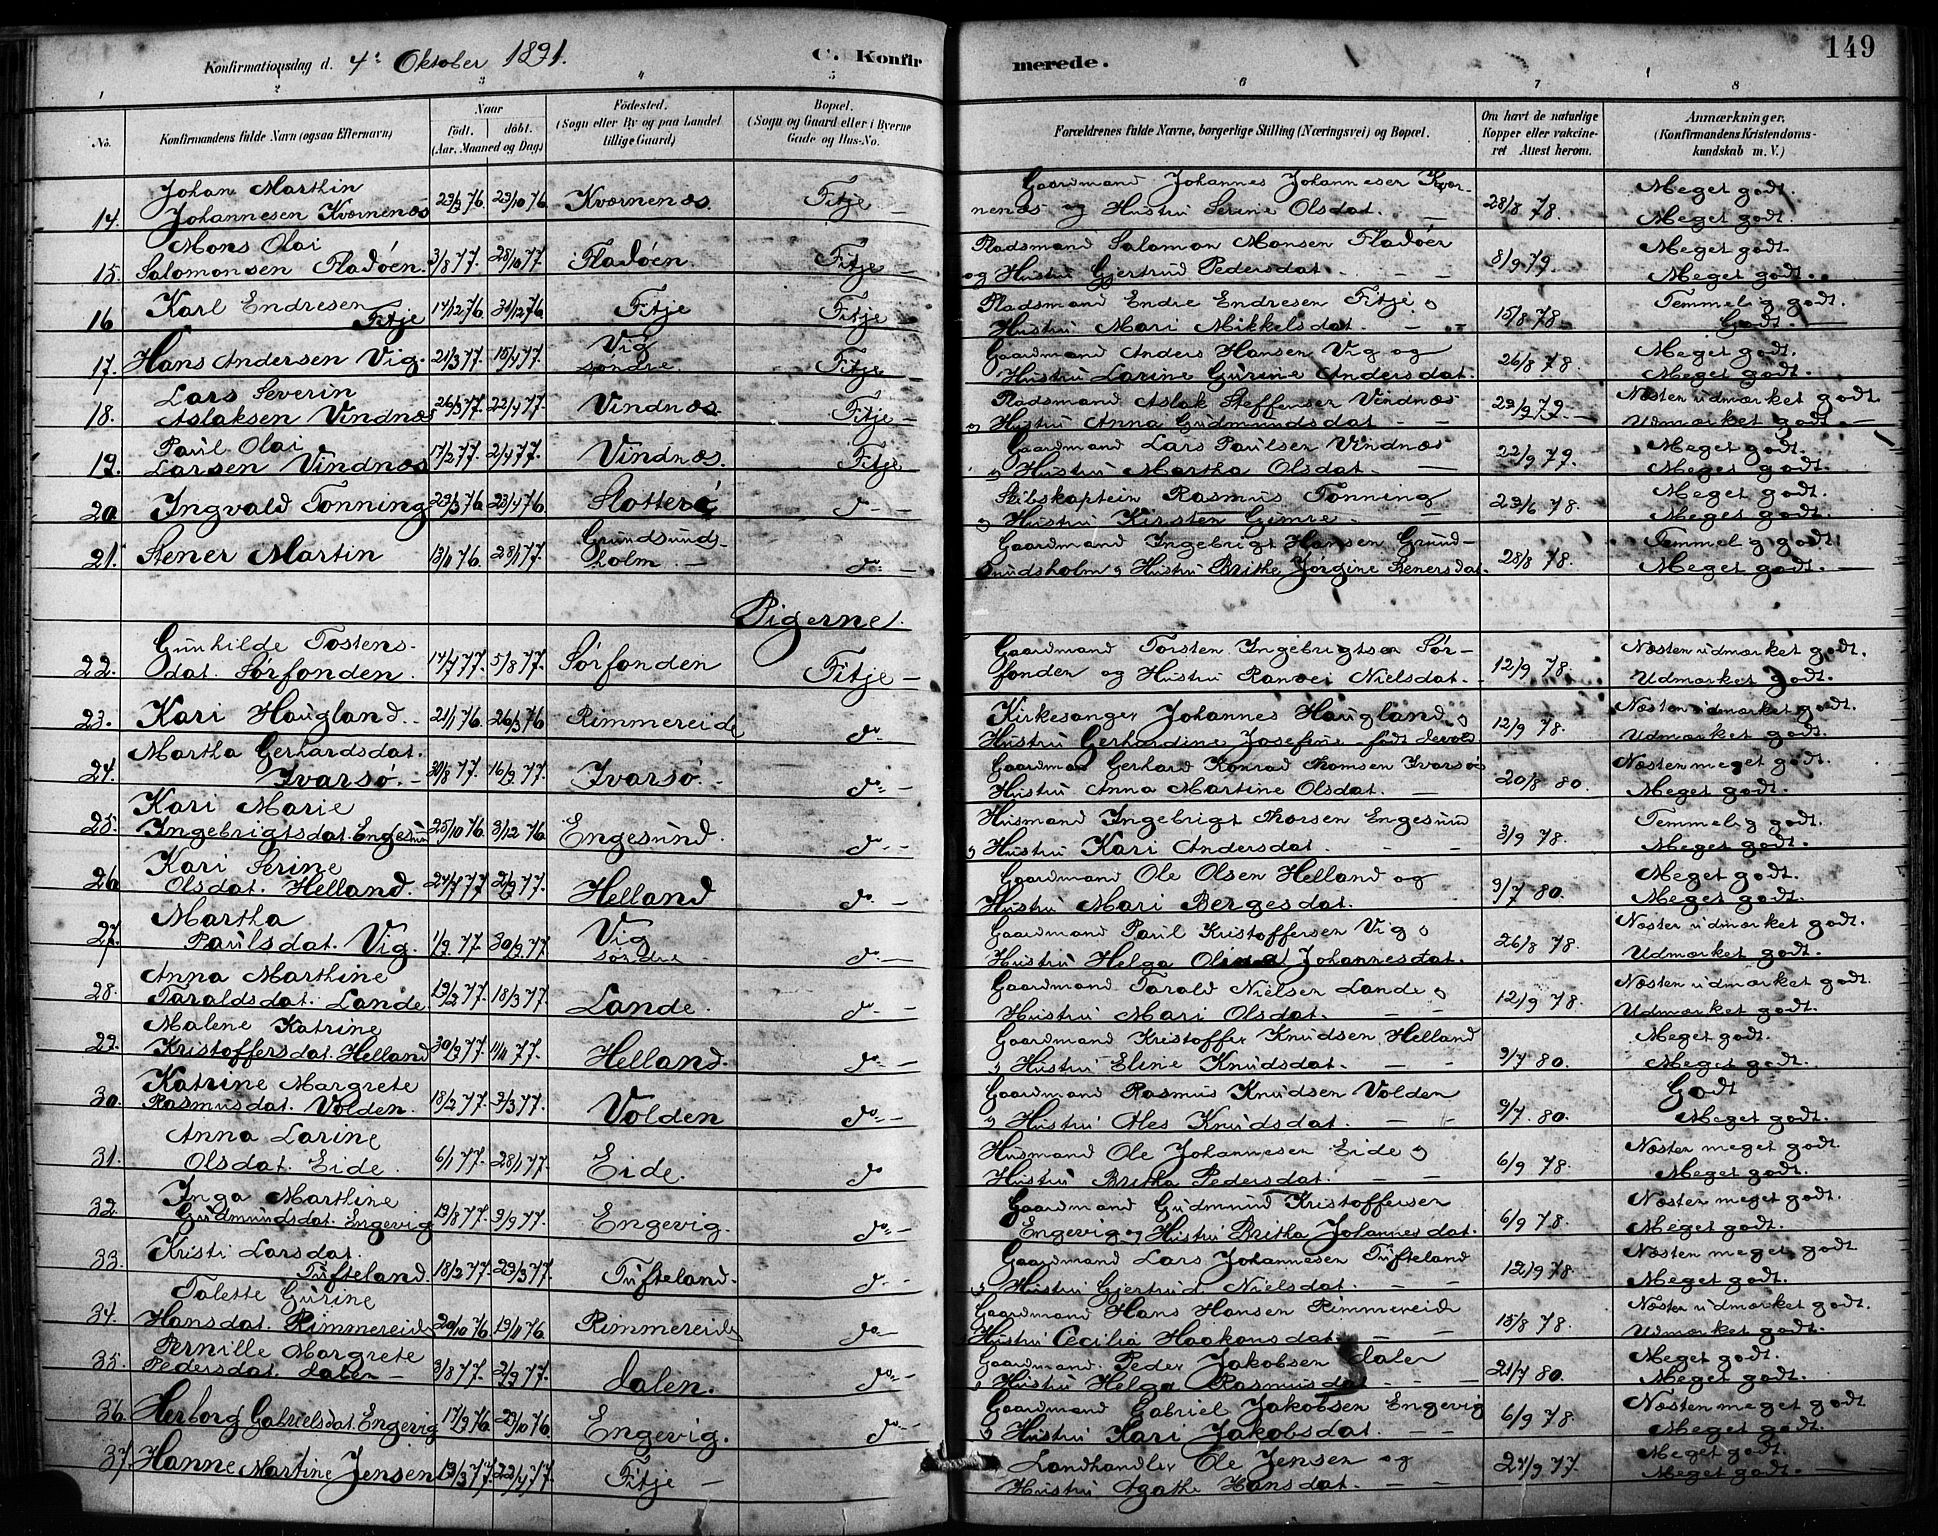 149
Konfirmationsdag d. 4de Oktober 1891. C. Konfirmerede.
1 2 3 4 5 6 7 8
No.
Konfirmandens fulde Navn (ogsaa Efternavn)
Naar
født. døbt.
(Aar, Maaned og Dag)
Fødested.
(Sogn eller By og paa Landet
tillige Gaard)
Bopæl.
(Sogn og Gaard eller i Byerne
Gade og Hus-No.
Forældrenes fulde Navne, borgerlige Stilling (Næringsvei) og Bopæl.
Om havt de naturlige
Kopper eller vakcine-
ret Attest herom.
Anmærkninger.
(Konfirmandens Kristendoms-
kundskab m. V.)
Johan Marthin Gaardmand Johannes Johannesen Kvær- Meget godt.
14. Johannesen Kværnenæs 23/9 76 29/10 76 Kværnenæs. Fitje nenæs og Hustru Serine Olsdat. 28/8 78. Meget godt.
Mons Olai Pladsmand Salomon Monsen Fladöen Meget godt.
15. Salomonsen Fladöen. 3/8 77. 28/10 77. Fladöen. Fitje og Hustru Gjertrud Pedersdat. 8/9 79. Meget godt.
Karl Endresen Pladsmand Endre Endresen Fitje Temmelig godt.
16 Fitje 17/12 76 31/12 76 Fitje Fitje Hustru Mari Mikkelsdat. 15/8 78 Godt.
Vig Gaardmand Anders Hansen Vig og Meget godt.
17. Hans Andersen Vig. 21/3 77. 15/4 77. søndre. Fitje Hustru Larine Gurine Andersdat. 26/8 78. Meget godt.
Lars Severin Pladsmand Aslak Steffensen Vindnæs Næsten udmærket godt.
18. Aslaksen Vindnæs 26/3 77. 22/4 77. Vindnæs. Fitje og Hustru Anna Gudmundsdat 29/9 79. Udmærket godt.
Paul Olai Gaardmand Lars Paulsen Vindnæs Meget godt.
19. Larsen Vindnæs 17/2 77. 2/4 77. Vindnæs. Fitje og Hustru Martha Olsdat. 22/9 79. Meget godt.
Skibskaptein Rasmus Tonning Meget godt.
20 Ingvald Tonning 23/3 76 23/4 76 Slotterö do og Hustru Kirsten Gimre. 23/6 78. Meget godt.
Grundsunds- Gaardmand Ingebrigt Hansen Grund- Temmelig godt.
21. Stener Martin 13/11 76. 28/1 77. holm do sundsholm og Hustru Brithe Jörgine Renersdat. 28/8 78. Meget godt.
Pigerne.
Gunhilde Tostens- Gaardmand Torsten Ingebrigtsen Sør- Næsten udmærket godt.
22. dat. Sørfonden. 14/7 77. 5/8 77. Sørfonden Fitje fonden og Hustru Ranvei Nielsdat. 12/9 78. Udmærket godt.
Kirkesanger Johannes Haugland og Næsten udmærket godt.
23. Kari Haugland. 21/1 76. 26/3 76 Rimmereide do Hustru Gerhardine Josefine født Devold 12/9 78. Udmærket godt.
Martha Gerhardsdat. Gaardman Gerhard Konrad Thomsen Ivarsö Næsten meget godt.
24. Ivarsö. 30/8 77. 16/9 77. Ivarsö. do Hustru Anna Martine Olsdat. 20/8 80. Meget godt.
Kari Marie Husmand Ingebrigt Thorsen Engesund Temmelig godt.
25. Ingebrigtsdat. Engesund 25/10 76. 3/12 76. Engesund. do og Hustru Kari Andersdat. 3/9 78. Meget godt.
Kari Serine Gaardmand Ole Olsen Helland og Meget godt.
26 Olsdat. Helland. 24/7 77 2/9 77. Helland do Hustru Mari Bergesdat. 9/7 80. Meget godt.
Martha Vig Gaardmand Paul Kristoffersen Vig og Næsten udmærket godt.
27. Paulsdat. Vig. 1/9 77 30/9 77. søndre do Hustru Helga Johannesdat. 26/8 78. Udmærket godt.
Anna Marthine Gaardmand Tarald Nielsen Lande og Næsten udmærket godt.
28. Taraldsdat. Lande 19/2 77. 18/3 77. Lande. do Hustru Mari Olsdat. 12/9 78. Udmærket godt.
Malene Katrine Gaardmand Kristoffer Knudsen Helland Meget godt.
29. Kristoffersdat. Helland 30/9 77. 11/11 77. Helland. do og Hustru Eline Knudsdat. 9/7 80. Meget godt.
Katrine Margrete Gaardmand Rasmus Knudsen Volden Godt
30. Rasmusdat. Volden. 18/2 77. 9/3 77. Volden do og Hustru Ales Knudsdat. 9/7 80. Meget godt.
Anna Larine Husmand Ole Johannesen Eide og Næsten meget godt.
31. Olsdat. Eide. 6/1 77. 28/1 77. Eide. do Hustru Britha Pedersdat. 6/9 78. Meget godt.
Inga Marthine Gaardmand Gudmund Kristoffersen Næsten meget godt.
32. Gudmundsdat. Engevig 19/8 77. 9/9 77. Engevig. do Engevig og Hustru Britha Johannesdat. 6/9 78. Meget godt.
Kristi Larsdat. Gaardmand Lars Johannesen Tufteland Næsten meget godt
33. Tufteland. 18/2 77. 29/3 77. Tufteland. do og Hustru Gjertrud Nielsdat. 12/9 78 Meget godt.
Talette Gurine Gaardmand Hans Hansen Rimmereide Næsten udmærket godt.
34. Hansdat. Rimmereide 20/10 76. 19/11 76. Rimmereide do Hustru Cecilia Haakonsdat 15/8 78. Udmærket godt.
Pernille Margrete Gaardmand. Peder Jakobsen Dalen Meget godt.
35. Pedersdat. Dalen 3/8 77. 2/9 77. Dalen. do og Hustru Helga Rasmusdat 21/7 80. Meget godt.
Gaardmand Gabriel Jakobsen Engevig Næsten meget godt
36. Herborg Gabrielsdat. Engevig 17/9 76 29/10 76. Engevig. do og Hustru Kari Jakobsdat. 6/9 78. Meget godt.
Landhandler Ole Jensen og Meget godt.
37. Hanne Martine Jensen 19/3 77. 22/4 77. Fitje Hustru Agathe Hansdat. 24/9 77. Meget godt.